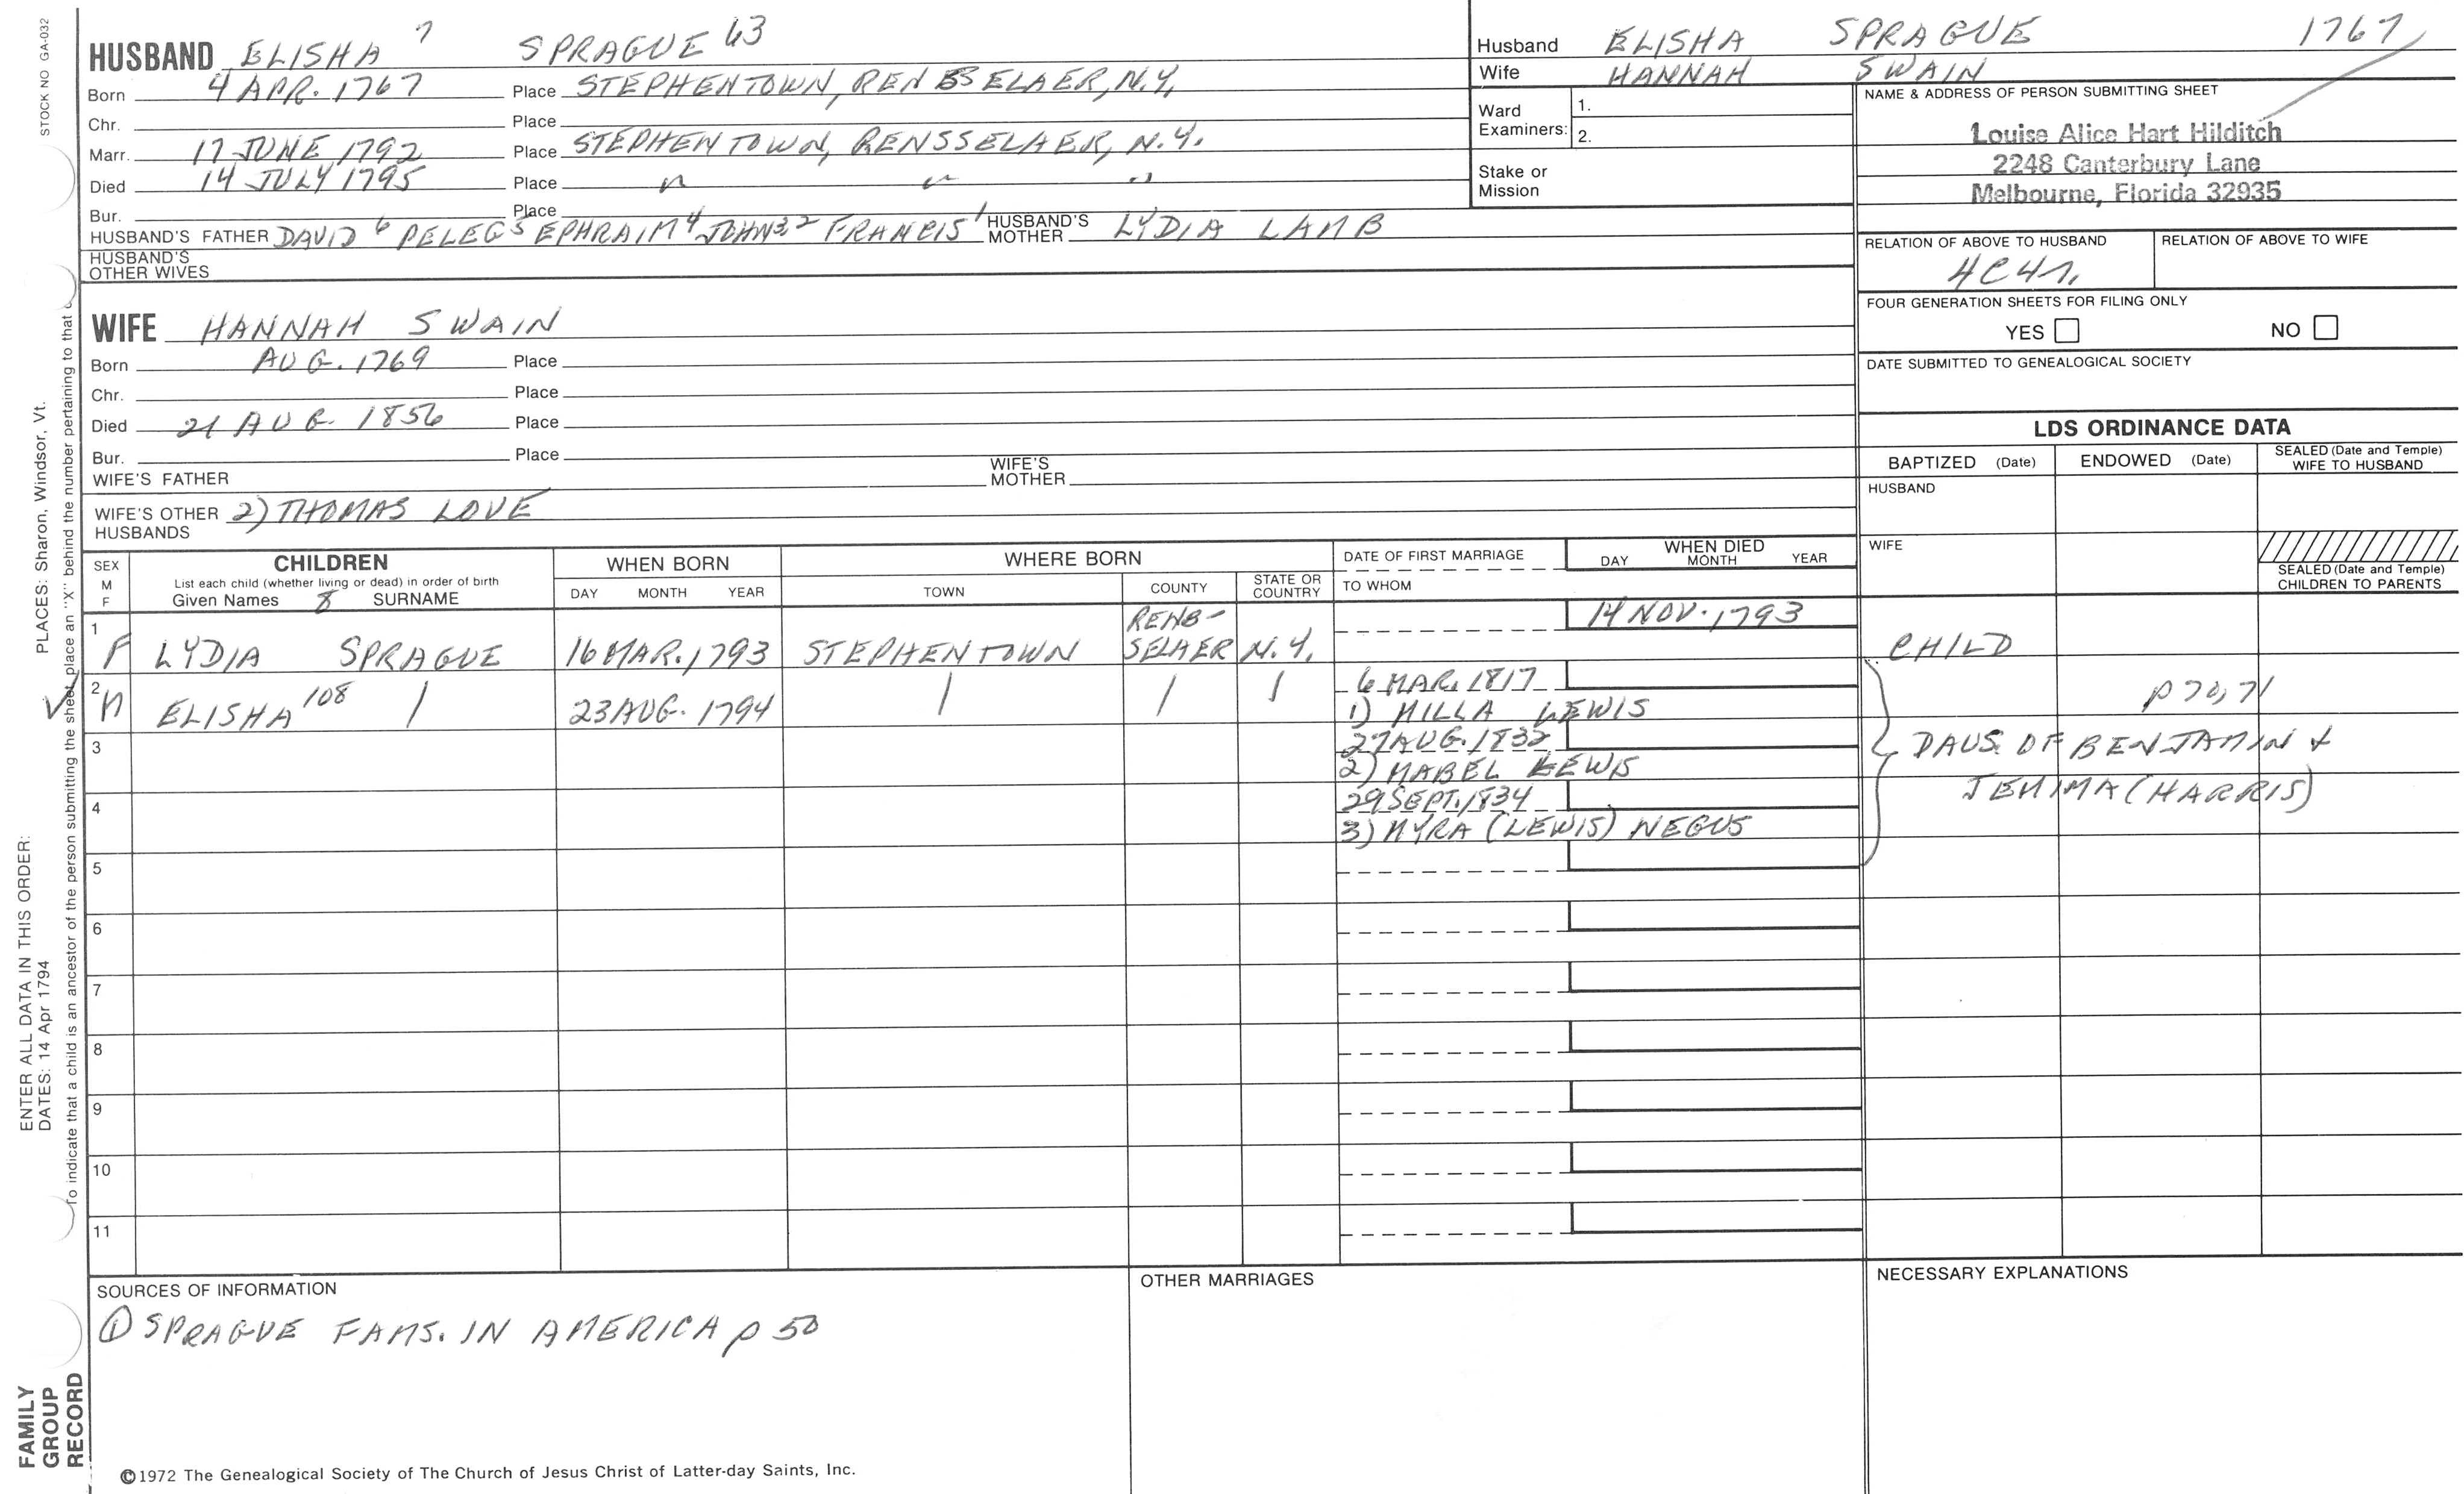 STOCK NO GA-032
HUSBAND ELISHA 7 SPRAGUE 63
Born 4 APR. 1767 Place STEPHENTOWN, RENSSELAER, N.Y.
Chr. Place
Marr. 17 JUNE 1792 Place STEPHENTOWN, RENSSELAER, N.Y.
Died 14 JULY 1795 Place " " "
Bur. Place
HUSBAND'S FATHER DAVID 6 PELEG 5 EPHRAIM 4 JOHN 3,2 FRANCIS 1 HUSBAND'S MOTHER LYDIA LAMB
HUSBAND'S OTHER WIVES
WIFE HANNAH SWAIN
Born AUG. 1769 Place
Chr. Place
Died 21 AUG. 1856 Place
Bur. Place
WIFE'S FATHER WIFE'S MOTHER
WIFE'S OTHER HUSBANDS 2) THOMAS LOVE
Husband ELISHA SPRAGUE 1767
Wife HANNAH SWAIN
Ward Examiners: 1.
2.
Stake or Mission
NAME & ADDRESS OF PERSON SUBMITTING SHEET
Louise Alice Hart Hilditch
2248 Canterbury Lane
Melbourne, Florida 32935
RELATION OF ABOVE TO HUSBAND RELATION OF ABOVE TO WIFE
4C4R.
FOUR GENERATION SHEETS FOR FILING ONLY
YES NO
DATE SUBMITTED TO GENEALOGICAL SOCIETY
LDS ORDINANCE DATA
BAPTIZED (Date) ENDOWED (Date) SEALED (Date and Temple) WIFE TO HUSBAND
HUSBAND
WIFE
SEALED (Date and Temple) CHILDREN TO PARENTS
SEX M F
CHILDREN
List each child (whether living or dead) in order of birth
Given Names 8 SURNAME
WHEN BORN
DAY MONTH YEAR
WHERE BORN
TOWN COUNTY STATE OR COUNTRY
DATE OF FIRST MARRIAGE
TO WHOM
WHEN DIED
DAY MONTH YEAR
1 F LYDIA SPRAGUE 16 MAR. 1793 STEPHENTOWN RENS-SELAER N.Y. 14 NOV. 1793 CHILD
2 M ELISHA 108 | 23 AUG. 1794 | | | 6 MAR. 1817
1) MILLA LEWIS p 70, 71
3 27 AUG. 1832
2) MABEL LEWIS DAUS. OF BENJAMIN +
4 29 SEPT. 1834 JEMIMA (HARRIS)
3) MYRA (LEWIS) NEGUS
5
6
7
8
9
10
11
SOURCES OF INFORMATION
① SPRAGUE FAMS. IN AMERICA p 50
OTHER MARRIAGES
NECESSARY EXPLANATIONS
©1972 The Genealogical Society of The Church of Jesus Christ of Latter-day Saints, Inc.
FAMILY GROUP RECORD
ENTER ALL DATA IN THIS ORDER:
DATES: 14 Apr 1794 PLACES: Sharon, Windsor, Vt.
To indicate that a child is an ancestor of the person submitting the sheet, place an "X" behind the number pertaining to that